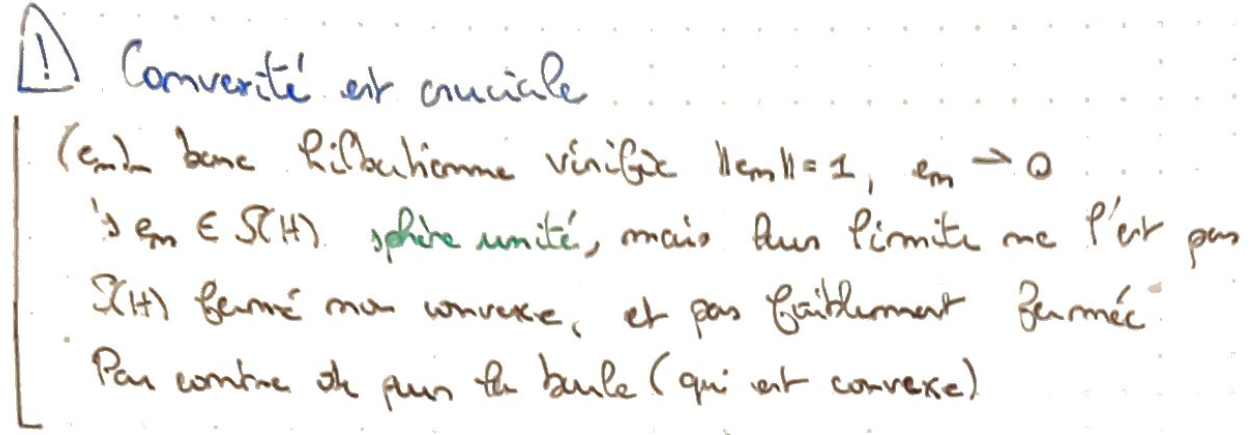 ! Convexité est cruciale
(e_n)_n base hilbertienne vérifie ||e_n|| = 1, e_n ⇀ 0
↳ e_n ∈ S(H) sphère unité, mais leur limite ne l'est pas
S(H) fermé non convexe, et pas faiblement fermée
Par contre ok pour la boule (qui est convexe)